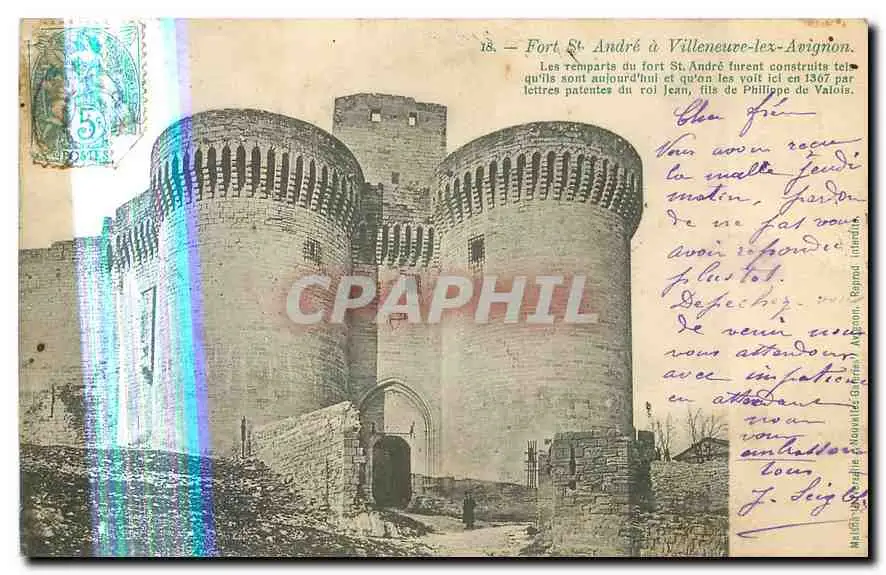 18. — Fort St. André à Villeneuve-lez-Avignon.
Les remparts du fort St. André furent construits tels
qu'ils sont aujourd'hui et qu'on les voit ici en 1367 par
lettres patentes du roi Jean, fils de Philippe de Valois.
5c
POSTES
CPAPHIL
Cher frère
Vous avons reçu
la malle jeudi
matin, pardon
de ne pas vous
avoir répondu
plus tot.
Depechez-vous
de venir nous
vous attendons
avec impatience
en attendant
nous
vous
embrassons
tous
J.
Maison Universelle & Nouvelles Galeries, Avignon. Reprod. Interdite.